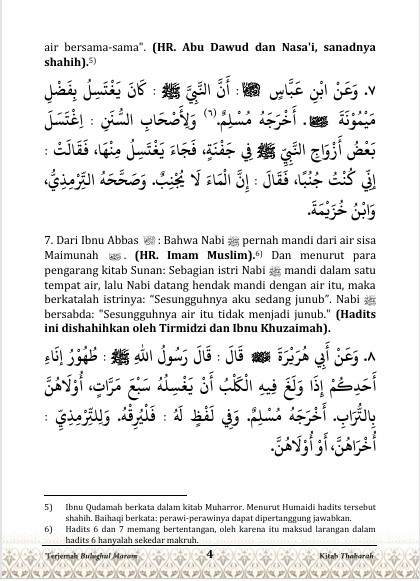 air bersama-sama". (HR. Abu Dawud dan Nasa'i, sanadnya
shahih).5)
٧. وَعَنْ اِبْنِ عَبَّاسٍ : أَنَّ النَّبِيَّ ﷺ : كَانَ يَغْتَسِلُ بِفَضْلِ
مَيْمُونَةَ . أَخْرَجَهُ مُسْلِمٌ.(٦) وَلِأَصْحَابِ السُّنَنِ : اِغْتَسَلَ
بَعْضُ أَزْوَاجِ النَّبِيِّ ﷺ فِي جَفْنَةٍ، فَجَاءَ يَغْتَسِلُ مِنْهَا، فَقَالَتْ :
إِنِّي كُنْتُ جُنُبًا، فَقَالَ : إِنَّ الْمَاءَ لَا يُجْنِبُ. وَصَحَّحَهُ التِّرْمِذِيُّ،
وَابْنُ خُزَيْمَةَ.
7. Dari Ibnu Abbas : Bahwa Nabi ﷺ pernah mandi dari air sisa
Maimunah . (HR. Imam Muslim).6) Dan menurut para
pengarang kitab Sunan: Sebagian istri Nabi ﷺ mandi dalam satu
tempat air, lalu Nabi datang hendak mandi dengan air itu, maka
berkatalah istrinya: “Sesungguhnya aku sedang junub”. Nabi ﷺ
bersabda: "Sesungguhnya air itu tidak menjadi junub." (Hadits
ini dishahihkan oleh Tirmidzi dan Ibnu Khuzaimah).
٨. وَعَنْ أَبِي هُرَيْرَةَ قَالَ : قَالَ رَسُولُ اللهِ ﷺ : طُهُوْرُ إِنَاءِ
أَحَدِكُمْ إِذَا وَلَغَ فِيهِ الْكَلْبُ أَنْ يَغْسِلَهُ سَبْعَ مَرَّاتٍ، أُوْلَاهُنَّ
بِالتُّرَابِ. أَخْرَجَهُ مُسْلِمٌ. وَفِي لَفْظٍ لَهُ : فَلْيُرِقْهُ. وَلِلتِّرْمِذِيِّ :
أُخْرَاهُنَّ، أَوْ أُوْلَاهُنَّ.
5) Ibnu Qudamah berkata dalam kitab Muharror. Menurut Humaidi hadits tersebut
shahih. Baihaqi berkata: perawi-perawinya dapat dipertanggung jawabkan.
6) Hadits 6 dan 7 memang bertentangan, oleh karena itu maksud larangan dalam
hadits 6 hanyalah sekedar makruh.
Terjemah Bulughul Maram 4 Kitab Thaharah